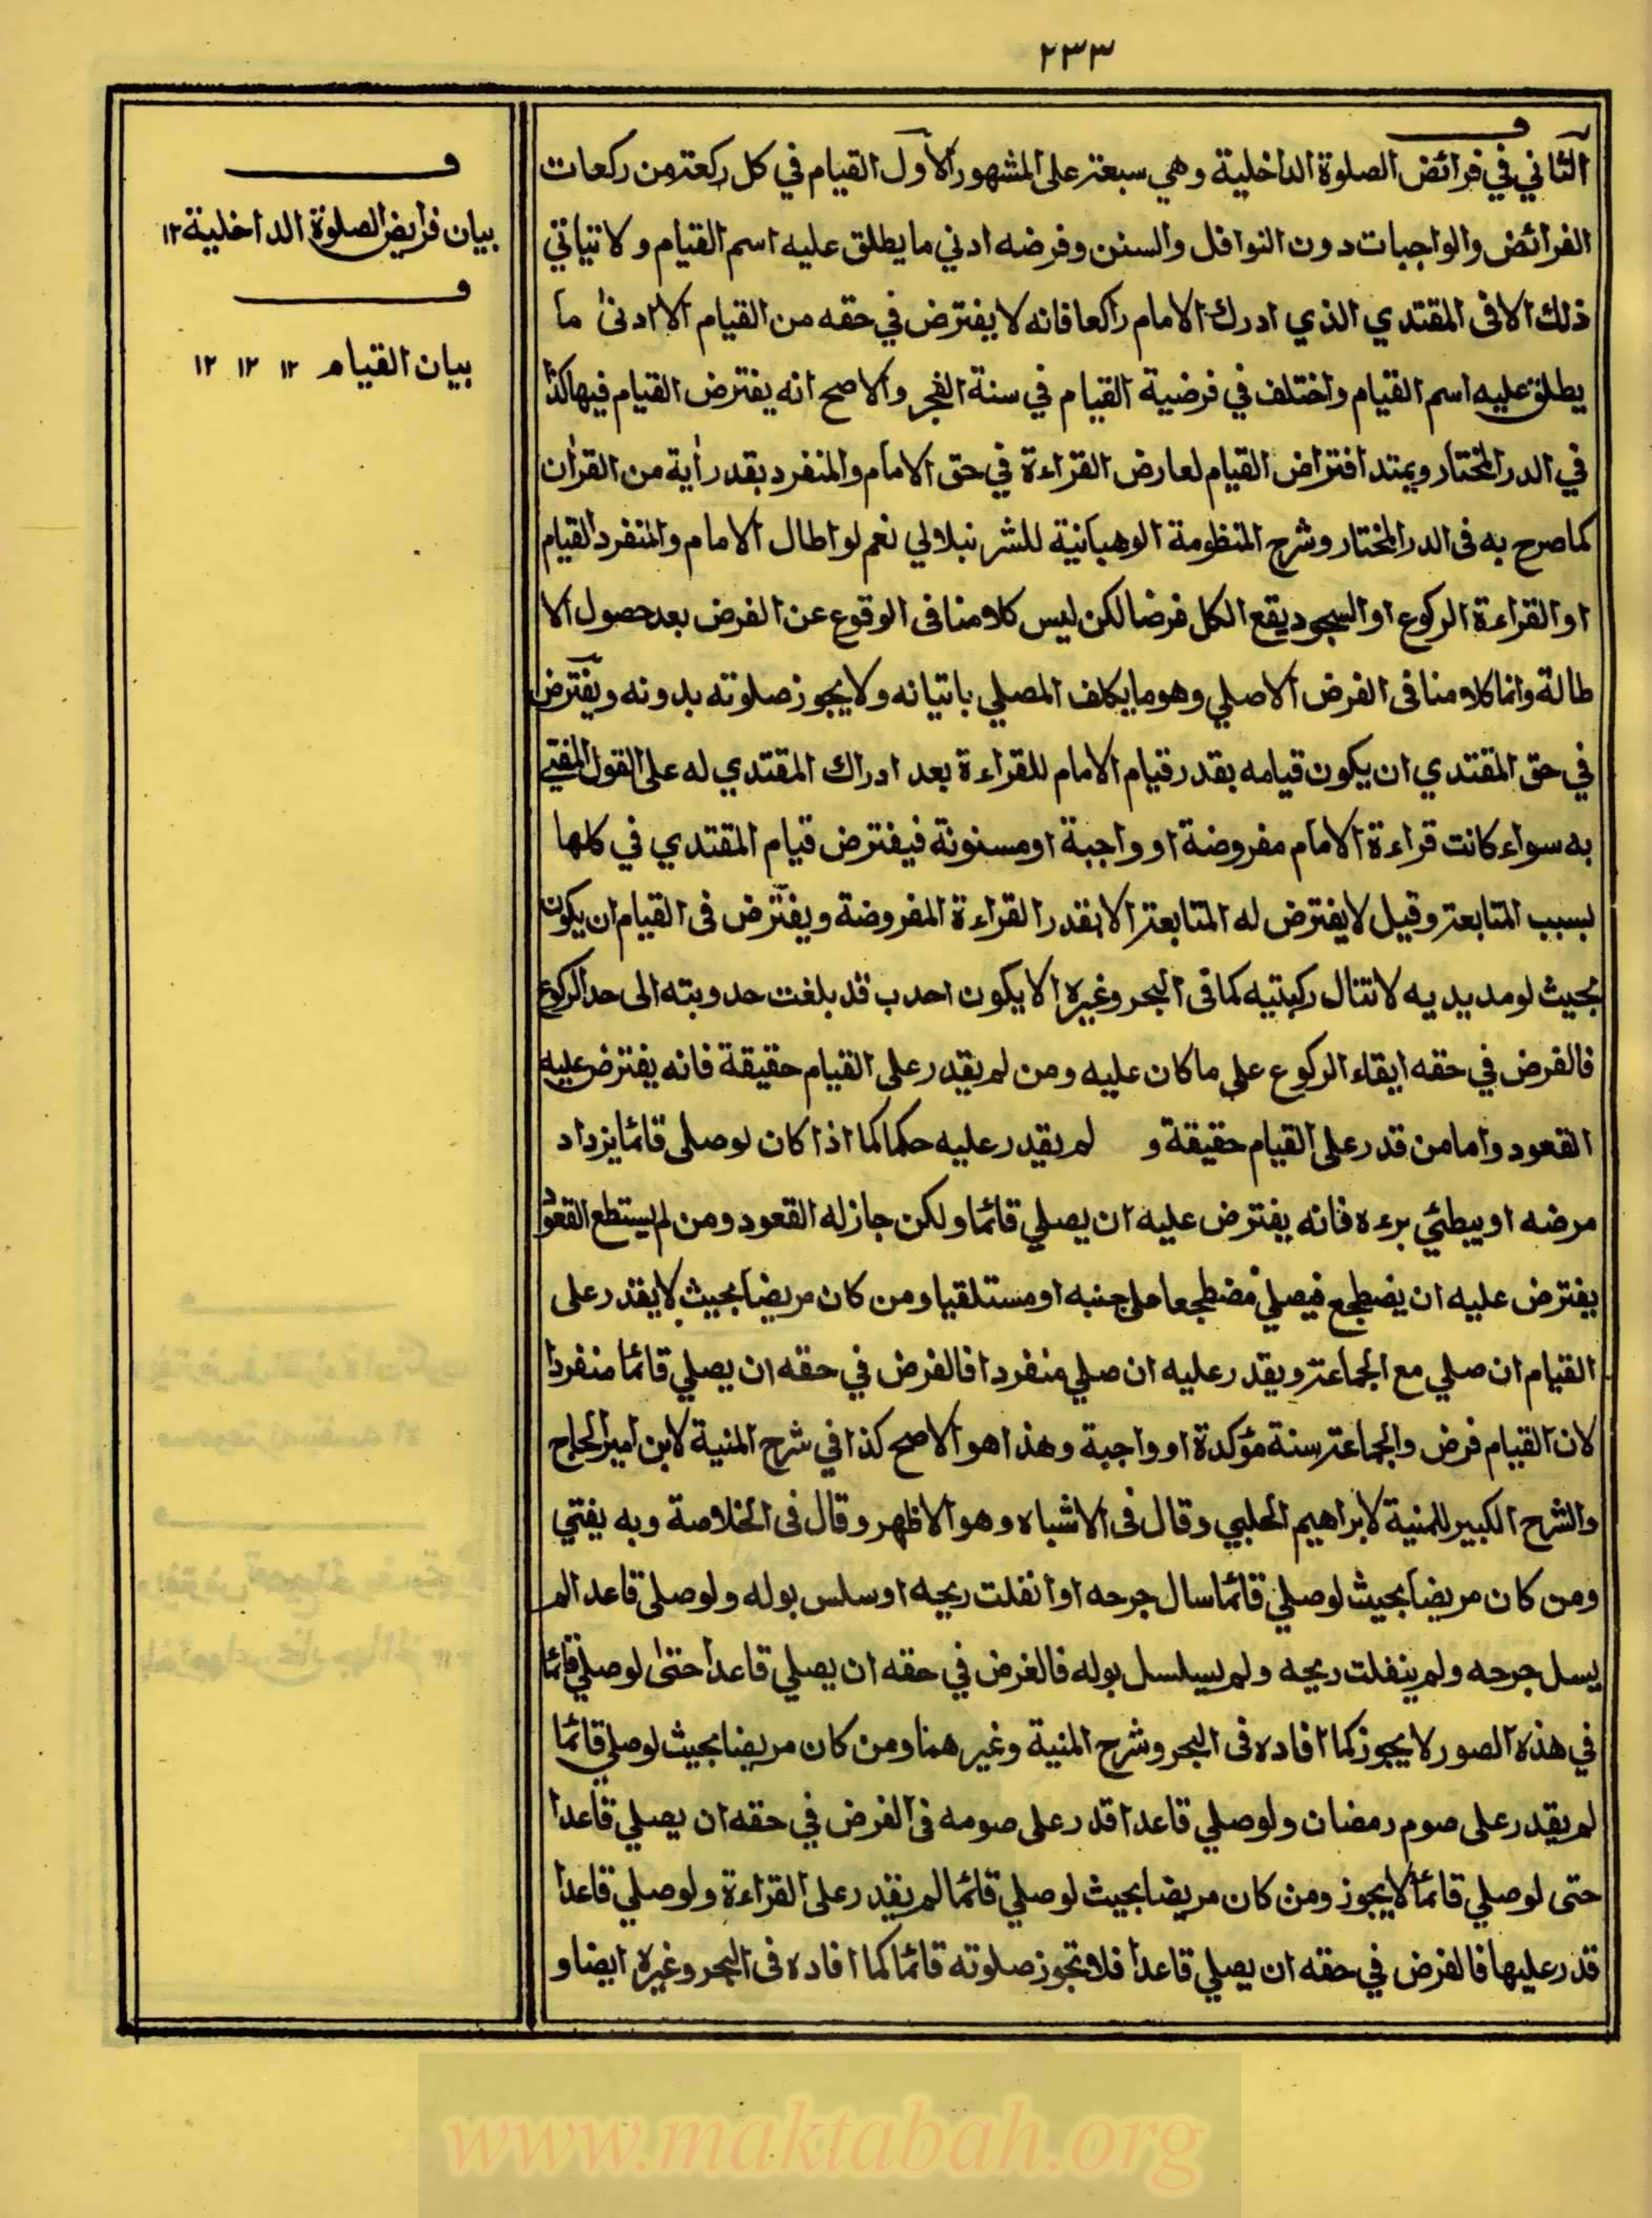 ٢٣٣
الثاني في فرائض الصلوة الداخلية وهي سبعة على المشهور الأول القيام في كل ركعة من ركعات
الفرائض والواجبات دون النوافل والسنن وفرضه ادني ما يطلق عليه اسم القيام ولا يتاتي
ذلك الا فى المقتدي الذي ادرك الامام راكعا فانه لا يفترض في حقه من القيام الا ادنىٰ ما
يطلق عليه اسم القيام واختلف في فرضية القيام في سنة الفجر والاصح انه يفترض القيام فيها كذا
في الدر المختار ويمتد افتراض القيام لعارض القراءة في حق الامام والمنفرد بقدر أية من القران
كما صرح به فى الدر المختار وشرح المنظومة الوهبانية للشرنبلالي نعم لو اطال الامام والمنفرد القيام
او القراءة الركوع او السجود يقع الكل فرضا لكن ليس كلامنا فى الوقوع عن الفرض بعد حصول الا
طالة وانما كلامنا فى الفرض الاصلي وهو ما يكلف المصلي باتيانه ولا يجوز صلوته بدونه ويفترض
في حق المقتدي ان يكون قيامه بقدر قيام الامام للقراءة بعد ادراك المقتدي له على القول المفتي
به سواء كانت قراءة الامام مفروضة او واجبة او مسنونة فيفترض قيام المقتدي في كلها
لسبب المتابعة وقيل لا يفترض له المتابعة الا بقدر القراءة المفروضة ويفترض فى القيام ان يكون
بحيث لو مد يديه لا تنال ركبتيه كما فى البحر وغيره الا يكون احدب قد بلغت حدوبته الى حد الركوع
فالفرض في حقه ابقاء الركوع على ما كان عليه ومن لم يقدر على القيام حقيقة فانه يفترض عليه
القعود واما من قدر على القيام حقيقة و لم يقدر عليه حكما كما اذا كان لو صلى قائما يزداد
مرضه او يبطئ برءه فانه يفترض عليه ان يصلي قائما ولكن جاز له القعود ومن لم يستطع القعود
يفترض عليه ان يضطجع فيصلي مضطجعا على جنبه او مستلقيا ومن كان مريضا بحيث لا يقدر على
القيام ان صلي مع الجماعة ويقدر عليه ان صلي منفردا فالفرض في حقه ان يصلي قائما منفردا
لان القيام فرض والجماعة سنة مؤكدة او واجبة وهذا هو الاصح كذا في شرح المنية لابن امير الحاج
والشرح الكبير للمنية لابراهيم الحلبي وقال فى الاشباه وهو الاظهر وقال فى الخلاصة وبه يفتي
ومن كان مريضا بحيث لو صلي قائما سال جرحه او انفلت ريحه او سلس بوله ولو صلى قاعدا لم
يسل جرحه ولم ينفلت ريحه ولم يسلسل بوله فالفرض في حقه ان يصلي قاعدا حتىٰ لو صلي قائما
في هذه الصور لا يجوز كما افاده فى البحر وشرح المنية وغيرهما ومن كان مريضا بحيث لو صلي قائما
لم يقدر على صوم رمضان ولو صلي قاعدا قدر على صومه فى الفرض في حقه ان يصلي قاعدا
حتى لو صلي قائما لا يجوز ومن كان مريضا بحيث لو صلي قائما لم يقدر على القراءة ولو صلي قاعدا
قدر عليها فالفرض في حقه ان يصلي قاعدا فلا تجوز صلوته قائما كما افاده فى البحر وغيره ايضا و
ف
بيان فرايض الصلوة الداخلية ١٢
ف
بيان القيام ١٢ ١٢ ١٢
www.maktabah.org